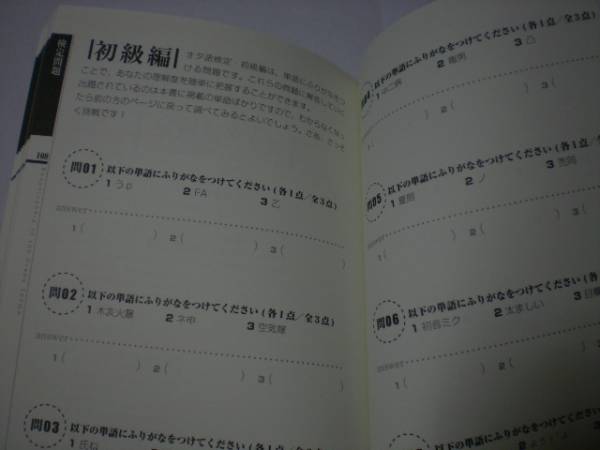 検定問題
初級編
オタ語検定 初級編は、単語にふりがなをつ
ける問題です。これらの問題に解答していく
ことで、あなたの理解度を簡単に把握することができます。
出題されているのは本書に掲載の単語ばかりですので、わからなくなっ
たら前の方のページに戻って調べてみるとよいでしょう。さあ、さっそ
く挑戦です！
問01 以下の単語にふりがなをつけてください (各1点／全3点)
1 うp 2 FA 3 乙
answer
1 ( ) 2 ( ) 3 ( )
問02 以下の単語にふりがなをつけてください (各1点／全3点)
1 木亥火暴 2 ネ申 3 空気嫁
answer
1 ( ) 2 ( ) 3 ( )
問03 以下の単語にふりがなをつけてください (各1点／全3点)
1 氏ね
以下の単語にふりがなをつけてください (各1点／全3点)
3 凸
1 ( ) 2 (
問05 以下の単語にふりがなをつけてください (各1点／全3点)
1 童貞 2 ノ
1 ( ) 2 (
問06 以下の単語にふりがなをつけてください (各
1 初音ミク 2 太ましい
1 ( ) 2 (
以下の単語にふりがなをつけてください